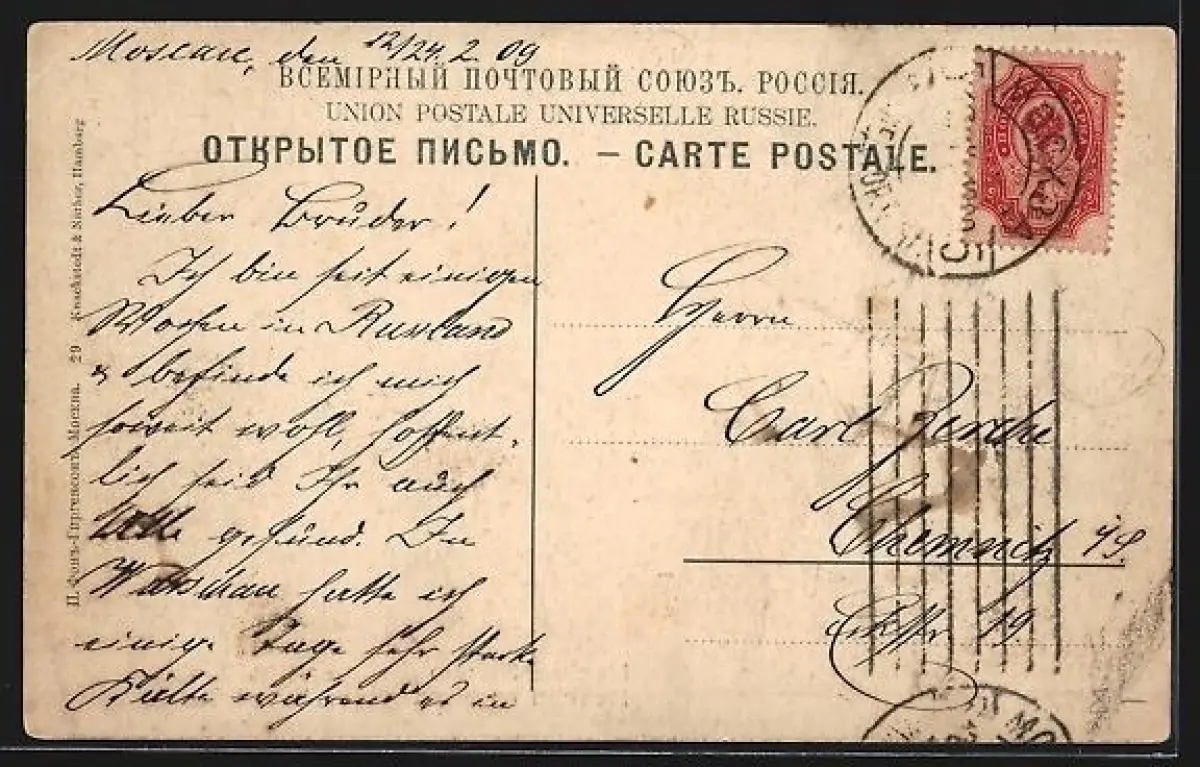 Moscau, den 12/24. 2. 09
ВСЕМІРНЫЙ ПОЧТОВЫЙ СОЮЗЪ. РОССІЯ.
UNION POSTALE UNIVERSELLE RUSSIE.
ОТКРЫТОЕ ПИСЬМО. — CARTE POSTALE.
Lieber Bruder!
Ich bin seit einigen
Wochen in Russland
& befinde ich mich
soweit wohl, hoffent-
lich seid Ihr auch
alle gesund. In
Warschau hatte ich
einige Tage sehr starke
Kälte während es in
Herrn
Carl
Chemnitz i/S.
19.
П. Фонъ-Гиргенсонъ, Москва. 29 Knackstedt & Näther, Hamburg